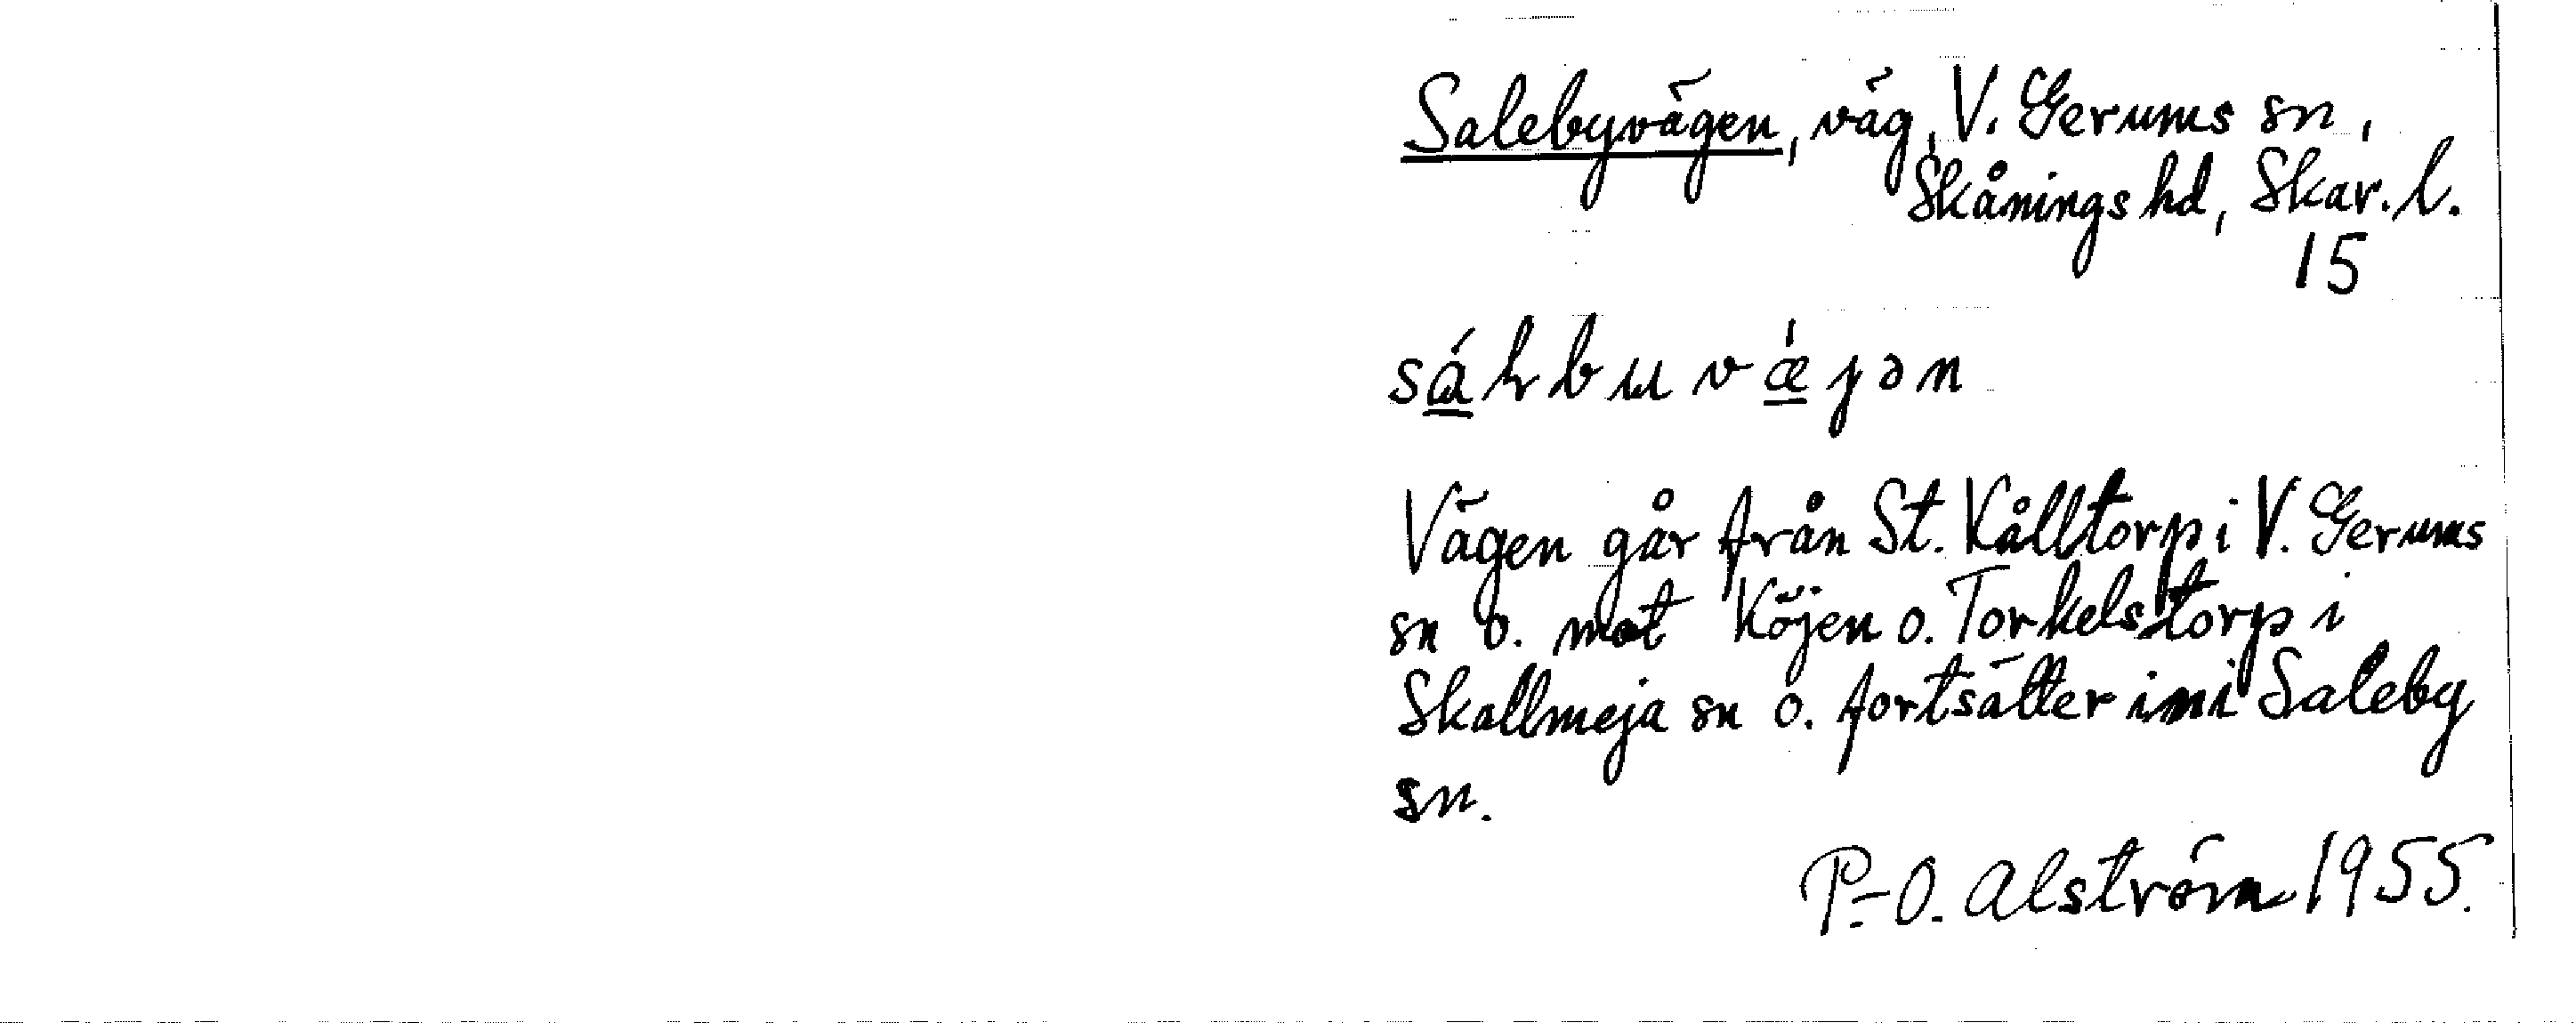 Salebyvägen, väg, V. Gerums sn,
Skånings hd, Skar. l.
15
Vägen går från St. Kålltorp i V. Gerums
sn o. mot Köjen o. Torkelstorp i
Skallmeja sn o. fortsätter in i Saleby
sn.
P.-O. Alström 1955.